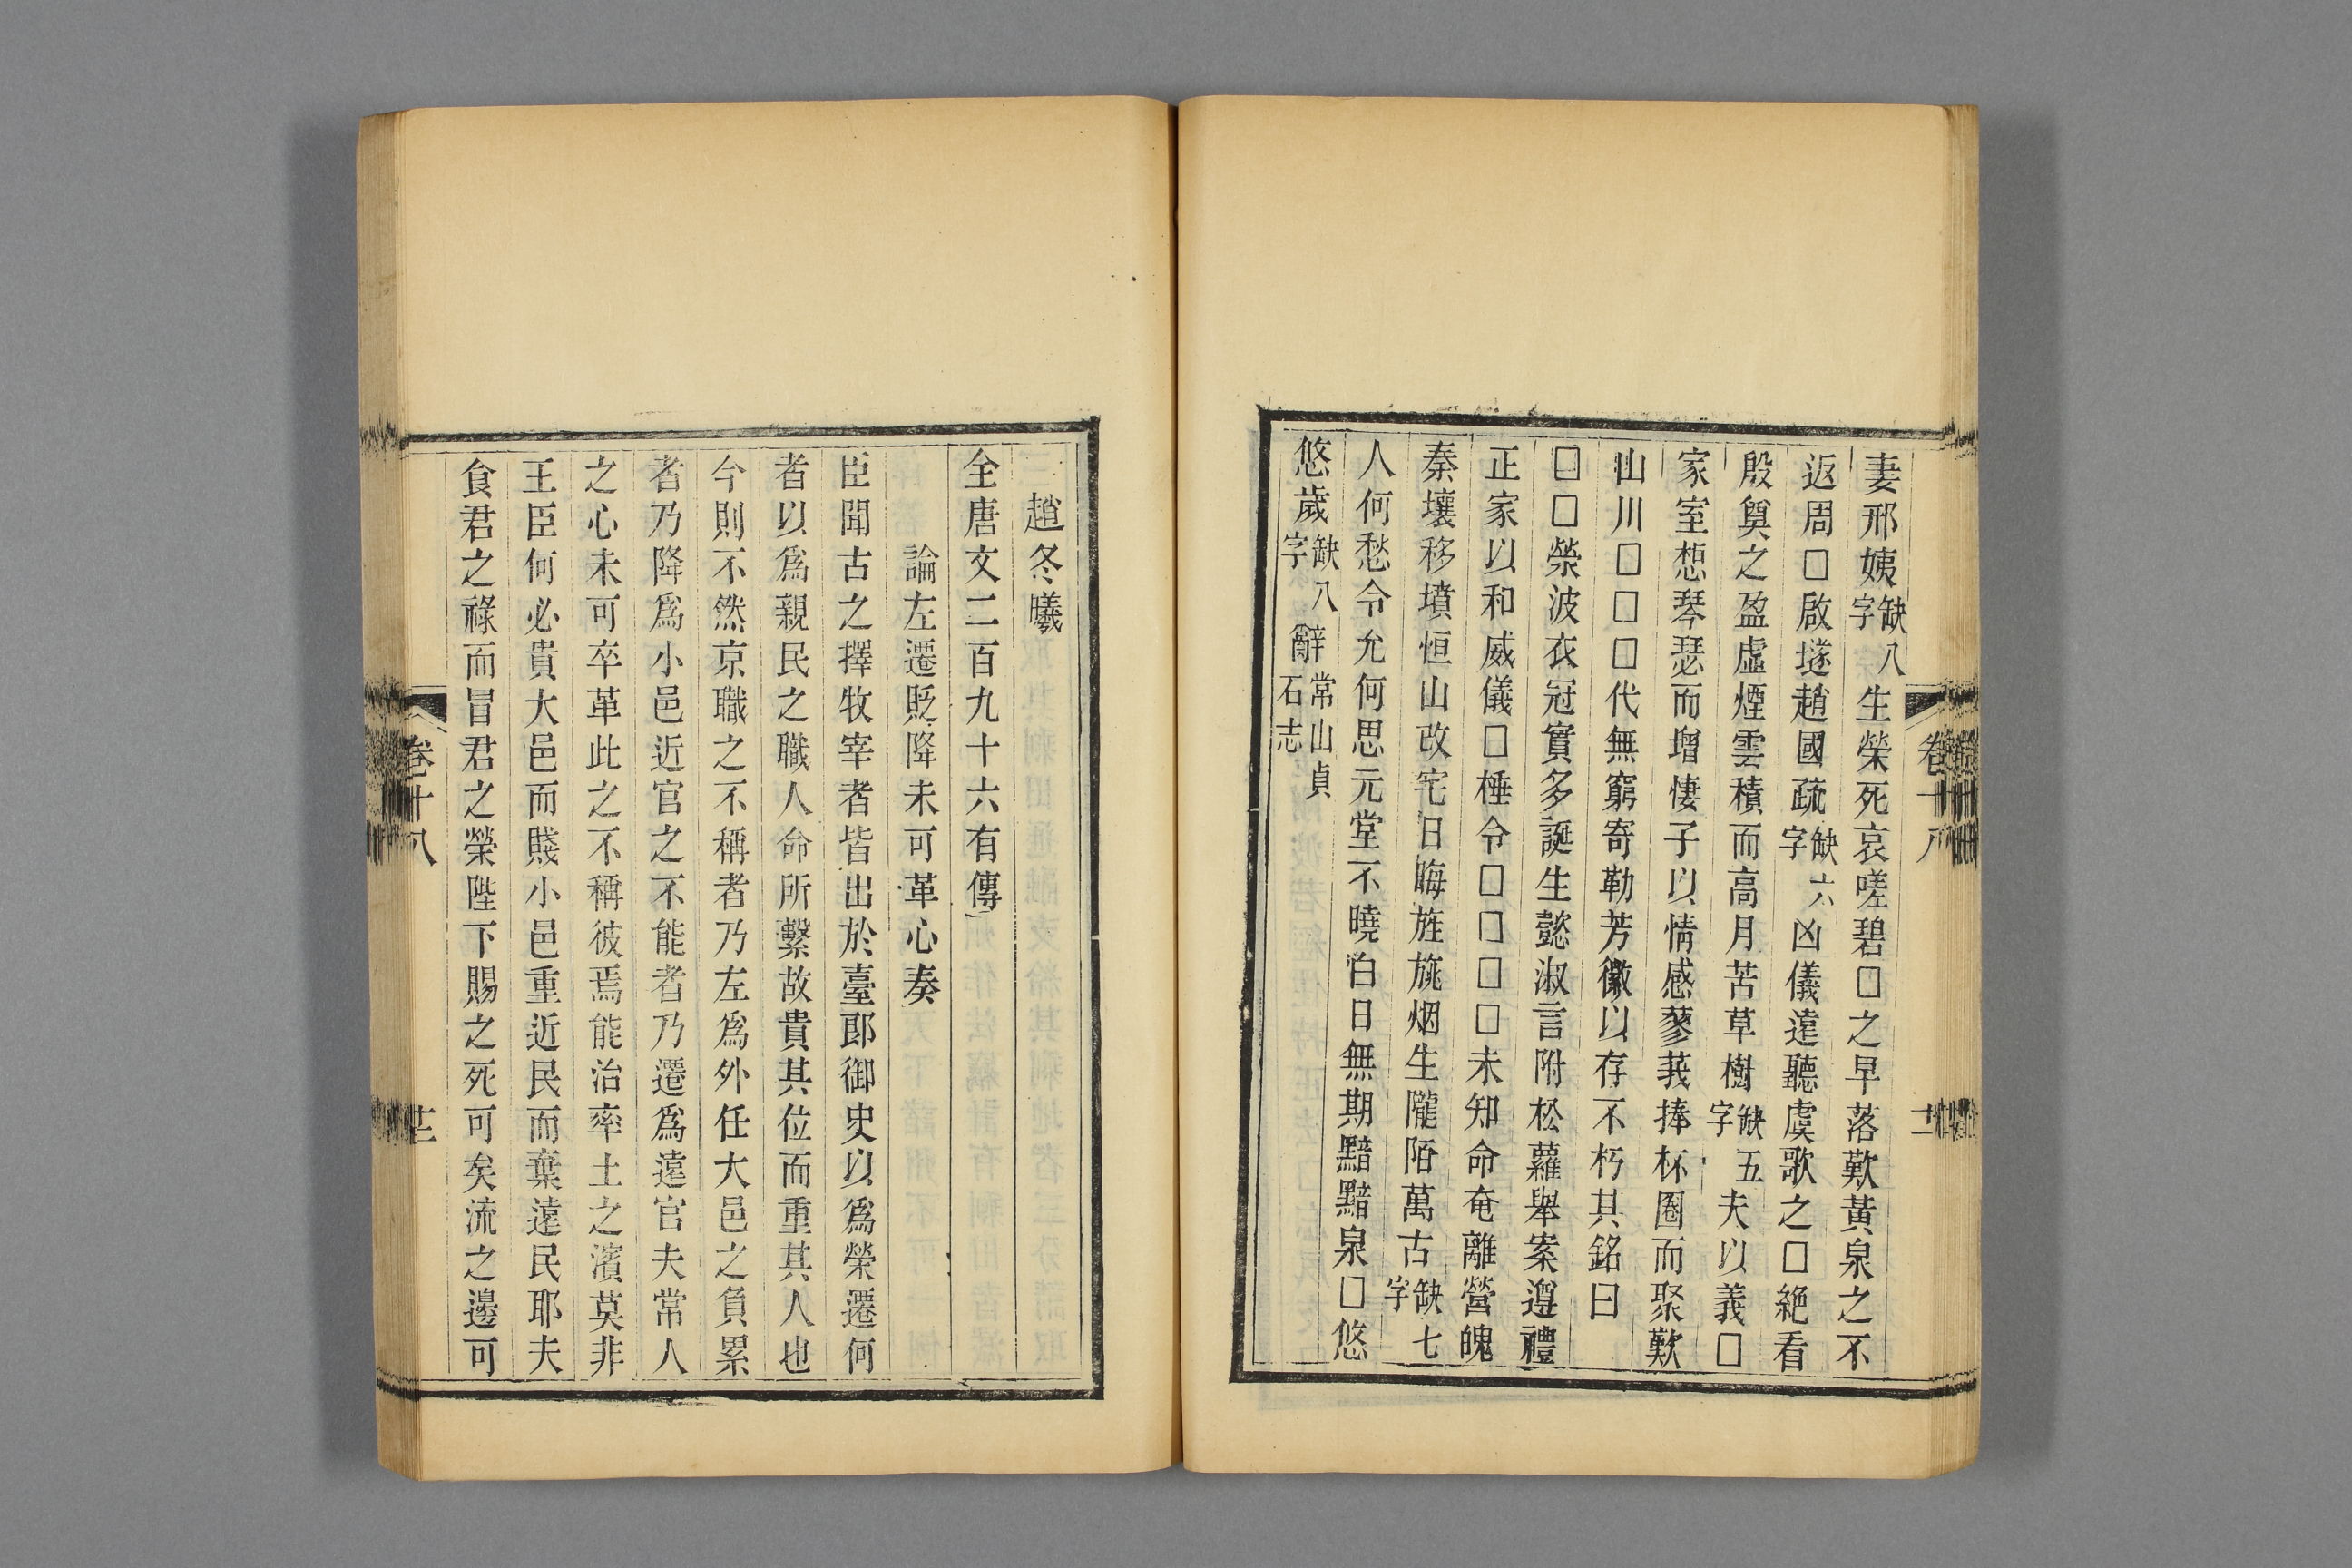 妻邢姨缺八字生榮死哀嗟碧□之早落歎黃泉之不
返周□啟墜趙國疏缺六字凶儀遠聽虞歌之□絕看
殷奠之盈虛煙雲積而高月苦草樹缺五字夫以義□
家室想琴瑟而增悽子以情感蓼莪捧杯圈而聚歎
山川□□□代無窮寄勒芳徽以存不朽其銘曰
□□榮波衣冠實多誕生懿淑言附松蘿舉案遵禮
正家以和威儀□棰令□□□□未知命奄離營魄
秦壤移墳恒山改宅日晦旌旐烟生隴陌萬古缺七字
人何愁令允何思元堂不曉白日無期黯黯泉□悠
悠歲缺八字辭常山貞石志
卷十八
趙冬曦
全唐文二百九十六有傳
論左遷貶降未可革心奏
臣聞古之擇牧宰者皆出於臺郎御史以爲榮遷何
者以爲親民之職人命所繫故貴其位而重其人也
今則不然京職之不稱者乃左爲外任大邑之負累
者乃降爲小邑近官之不能者乃遷爲遠官夫常人
之心未可卒革此之不稱彼焉能治率土之濱莫非
王臣何必貴大邑而賤小邑重近民而棄遠民耶夫
食君之祿而冒君之榮陛下賜之死可矣流之邊可
卷十八